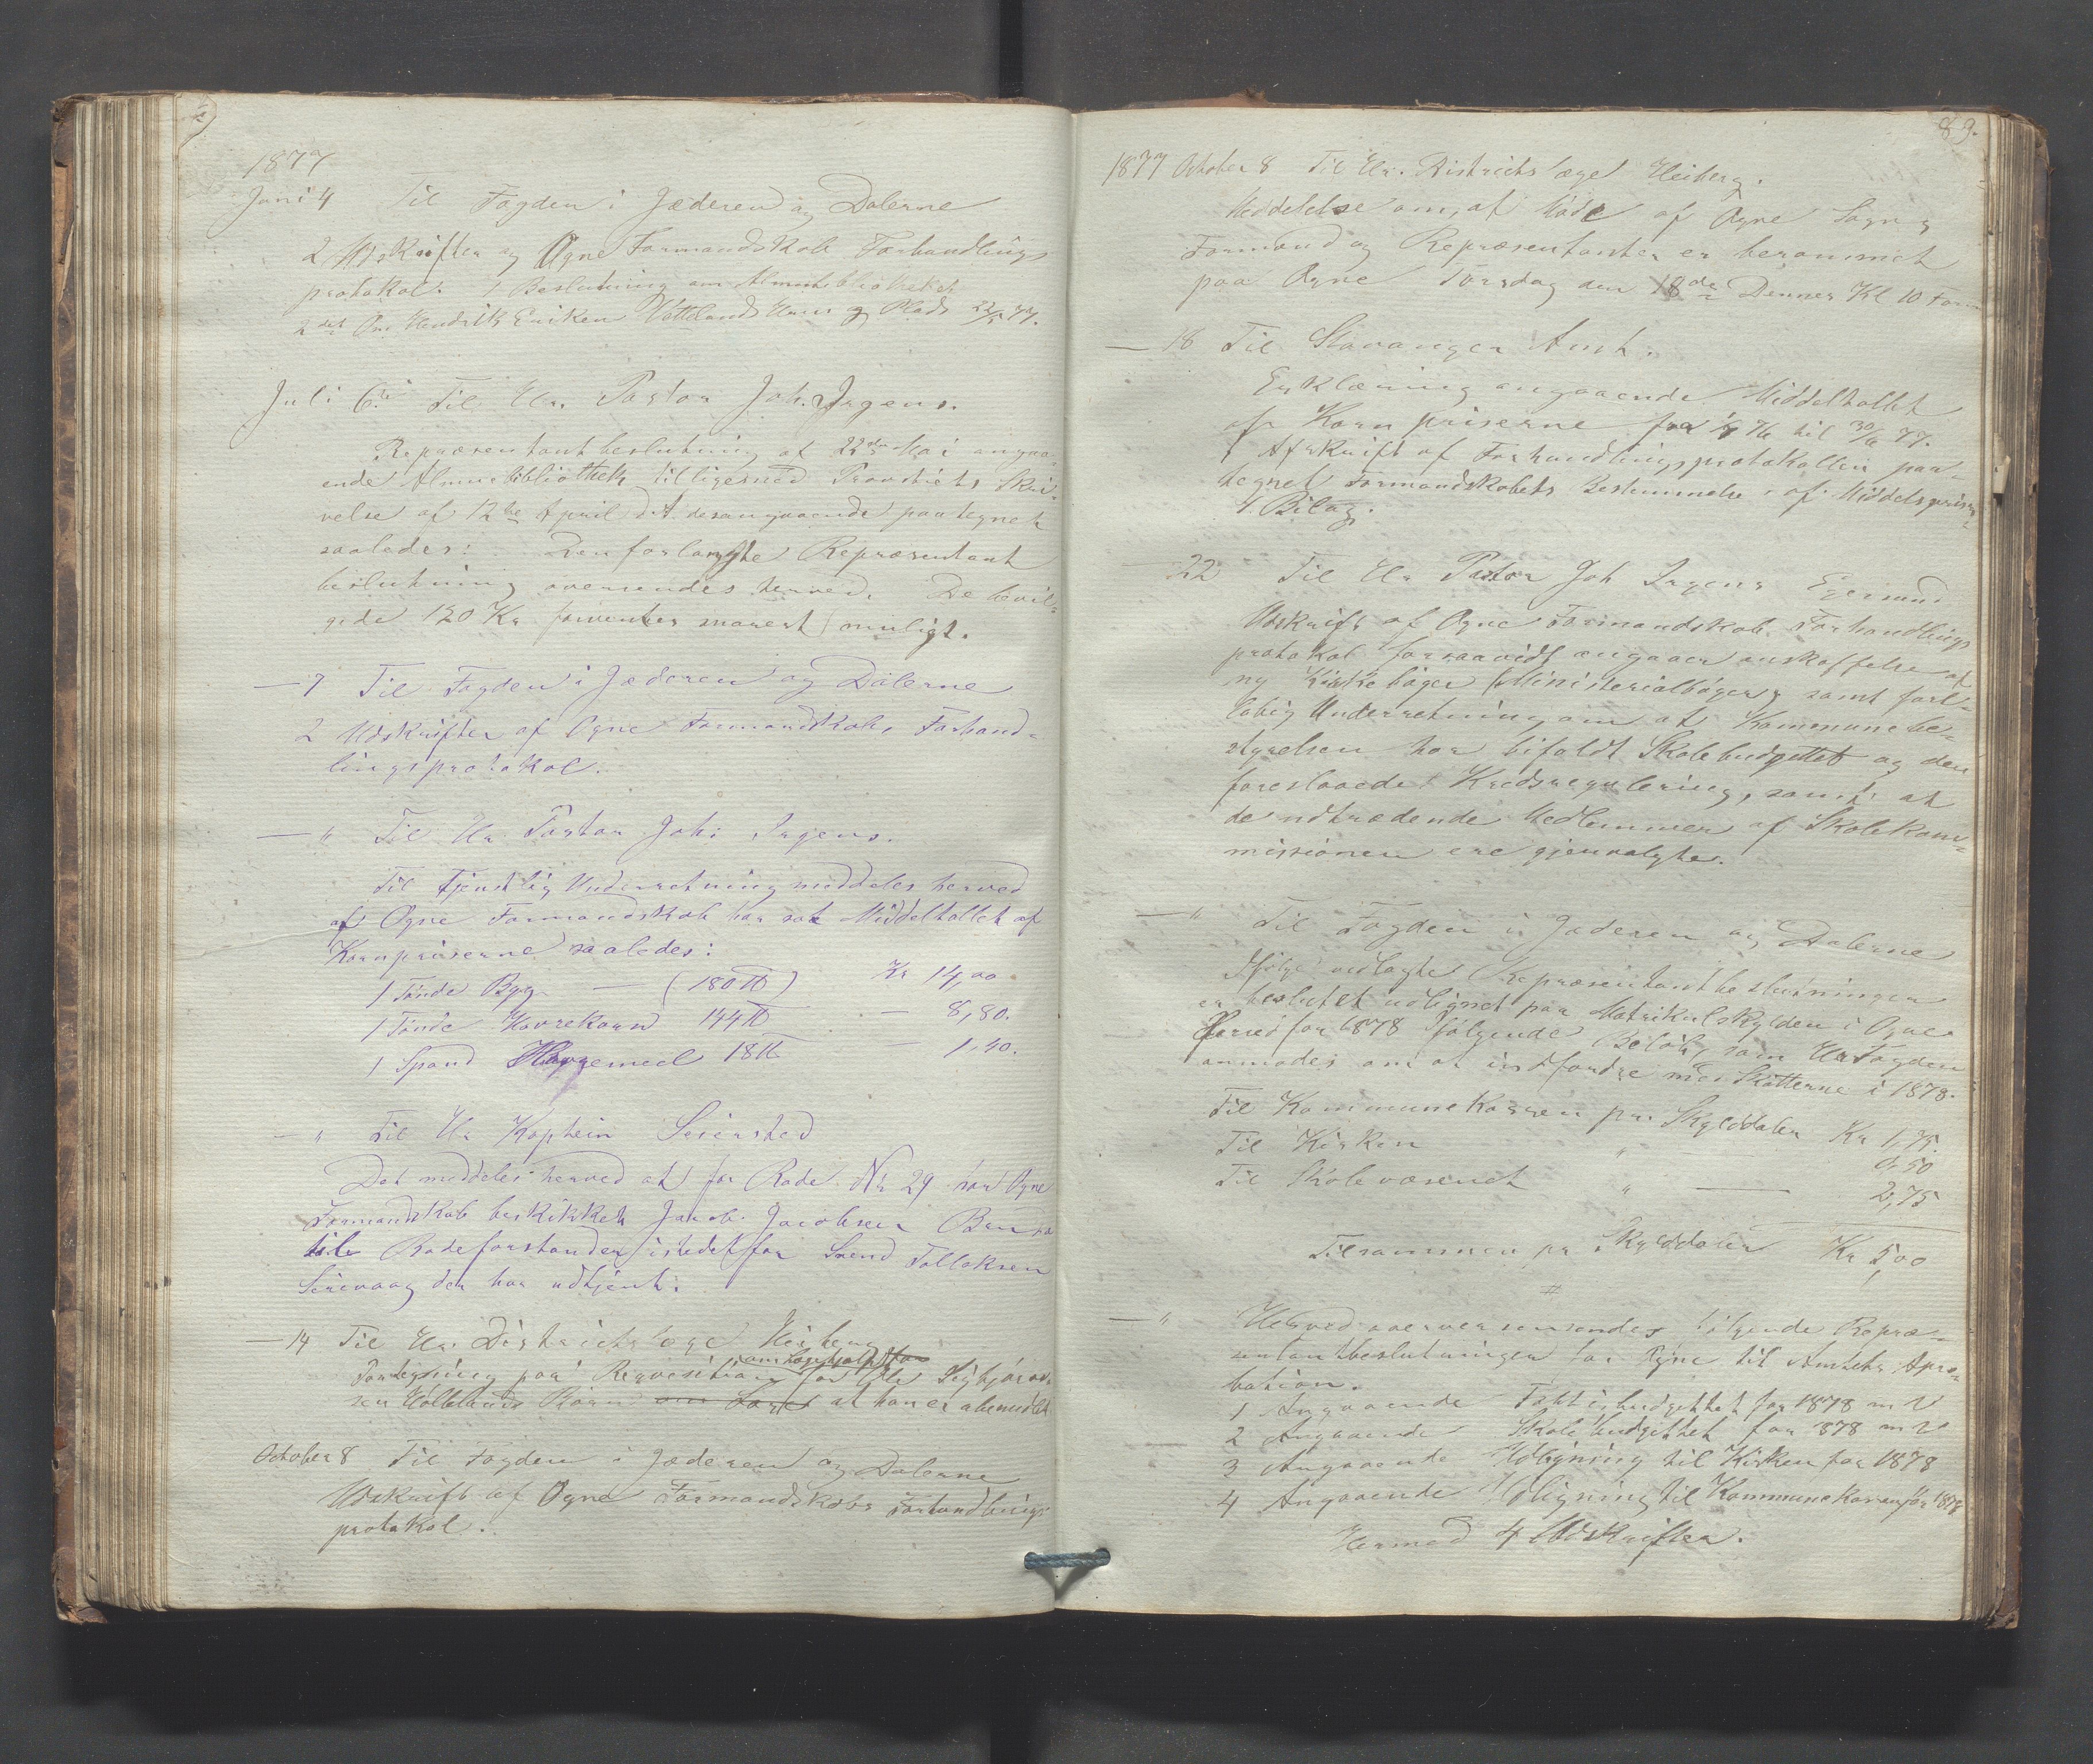 1877
Juni 4 Til Fogden i Jæderen og Dalerne
2 Udskrifter og Ogne Formandskab Forhandlings
protokol. 1 Beslutning om Almuebibliotheket
2det Om Hendrik Eriksen Vatteland Huus og Plads 22/5 77.
Juli 6te Til Hr. Pastor Joh. Irgens.
Repræsentantbeslutning af 22de Mai angaa-
ende Almuebibliothek tilligemed Provstiets Skri-
velse af 12te April d. A. desangaaende paategnet
saaledes: Den forlangte Repræsentant
beslutning oversendes herved. De bevil-
gede 120 Kr forventes snarest muligt.
— 7 Til Fogden i Jæderen og Dalerne
2 Udskrifter af Ogne Formandskab, Forhand-
lingsprotokol.
— " Til Hr Pastor Joh: Irgens.
Til tjenstlig Underretning meddeles herved
at Ogne Formandskab har sat Middeltallet af
Kornpriserne saaledes:
1 Tønde Byg — (180 ℔) Kr 14,00
1 Tønde Havrekorn 144 ℔ — 8,80.
1 Spand Havremeel 18 ℔ — 1,40.
— " Til Hr Kaptein Seiersted
Det meddeles herved at for Rode Nr 29 har Ogne
Formandskab beskikket Jacob Jacobsen
til Rodeforstander istedetfor Svend Tollaksen
Sirevaag der har udtjent.
— 14 Til Hr. Districtslæge Heiberg
om Lægehjælp for
Paategning paa Reqvisition for Ole Sigbjørn-
sen Hølleland Barn om Læge at han er ubemidlet
October 8 Til Fogden i Jæderen og Dalerne
Udskrift af Ogne Formandskabs Forhandlings
protokol.
89.
1877 October 8 Til Hr. Districtslæge Heiberg.
Meddelelse om, at Møde af Ogne Sogns
Formænd og Repræsentanter er berammet
paa Ogne Torsdag den 18de Dennes Kl 10 Form
— 18 Til Stavanger Amt.
Erklæring angaaende Middeltallet
af Kornpriserne fra 1/7 76 til 30/6 77.
Afskrift af Forhandlingsprotokollen paa-
tegnet Formandskabets Bestemmelse af Middelprisen
4 Bilag.
22 Til Hr Pastor Joh Irgens Egersund
Udskrift af Ogne Formandskab Forhandlings
protokol forsaavidt angaaer anskaffelse af
ny Kirkebøger (Ministerialbøger) samt forl-
løbig Underretning om at Kommunebe-
styrelsen har bifaldt Skolebudgettet og den
foreslaaede Kredsregulering, samt at
de udtrædende Medlemmer af Skolekom-
missionen ere gjenvalgte.
— " Til Fogden i Jæderen og Dalerne
Ifølge vedlagte Repræsentantbeslutninger
er besluttet udlignet paa Matrikulskylden i Ogne
Herred for 1878 følgende Beløb, som Hr Fogden
anmodes om at indfordre med Skatterne i 1878.
Til Kommunekassen pr. Skylddaler Kr 1,75.
Til Kirken " 0,50
Til Skolevæsenet " — 2,75
Tilsammen pr Skylddaler Kr 5,00
#
— " Herved oversendes følgende Repræ-
sentantbeslutninger for Ogne til Amtets Apro-
bation.
1 Angaaende Fattigbudgettet for 1878 m V
2 Angaaende Skolebudgettet for 1878 m V
3 Angaaende Udligning til Kirken for 1878
4 Angaaende Udligning til Kommunekassen for 1878
Hermed 4 Udskrifter.